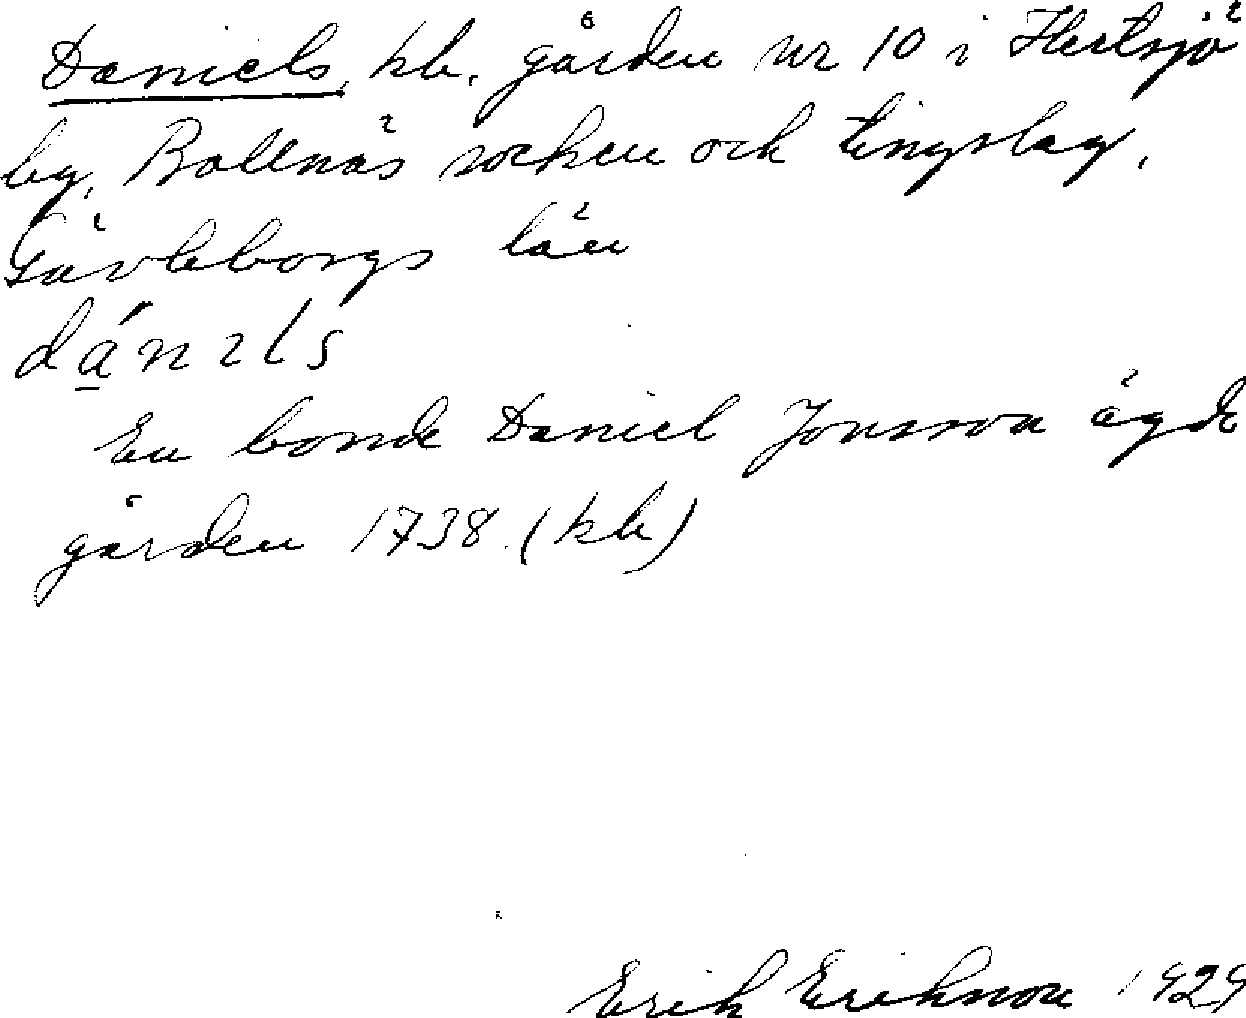 Daniels, kb. gården nr 10 i Hertsjö
by, Bollnäs socken och tingslag,
Gävleborgs län
dá̱nɩls
En bonde Daniel Jonsson ägde
gården 1738 (kb)
Erik Eriksson 1929